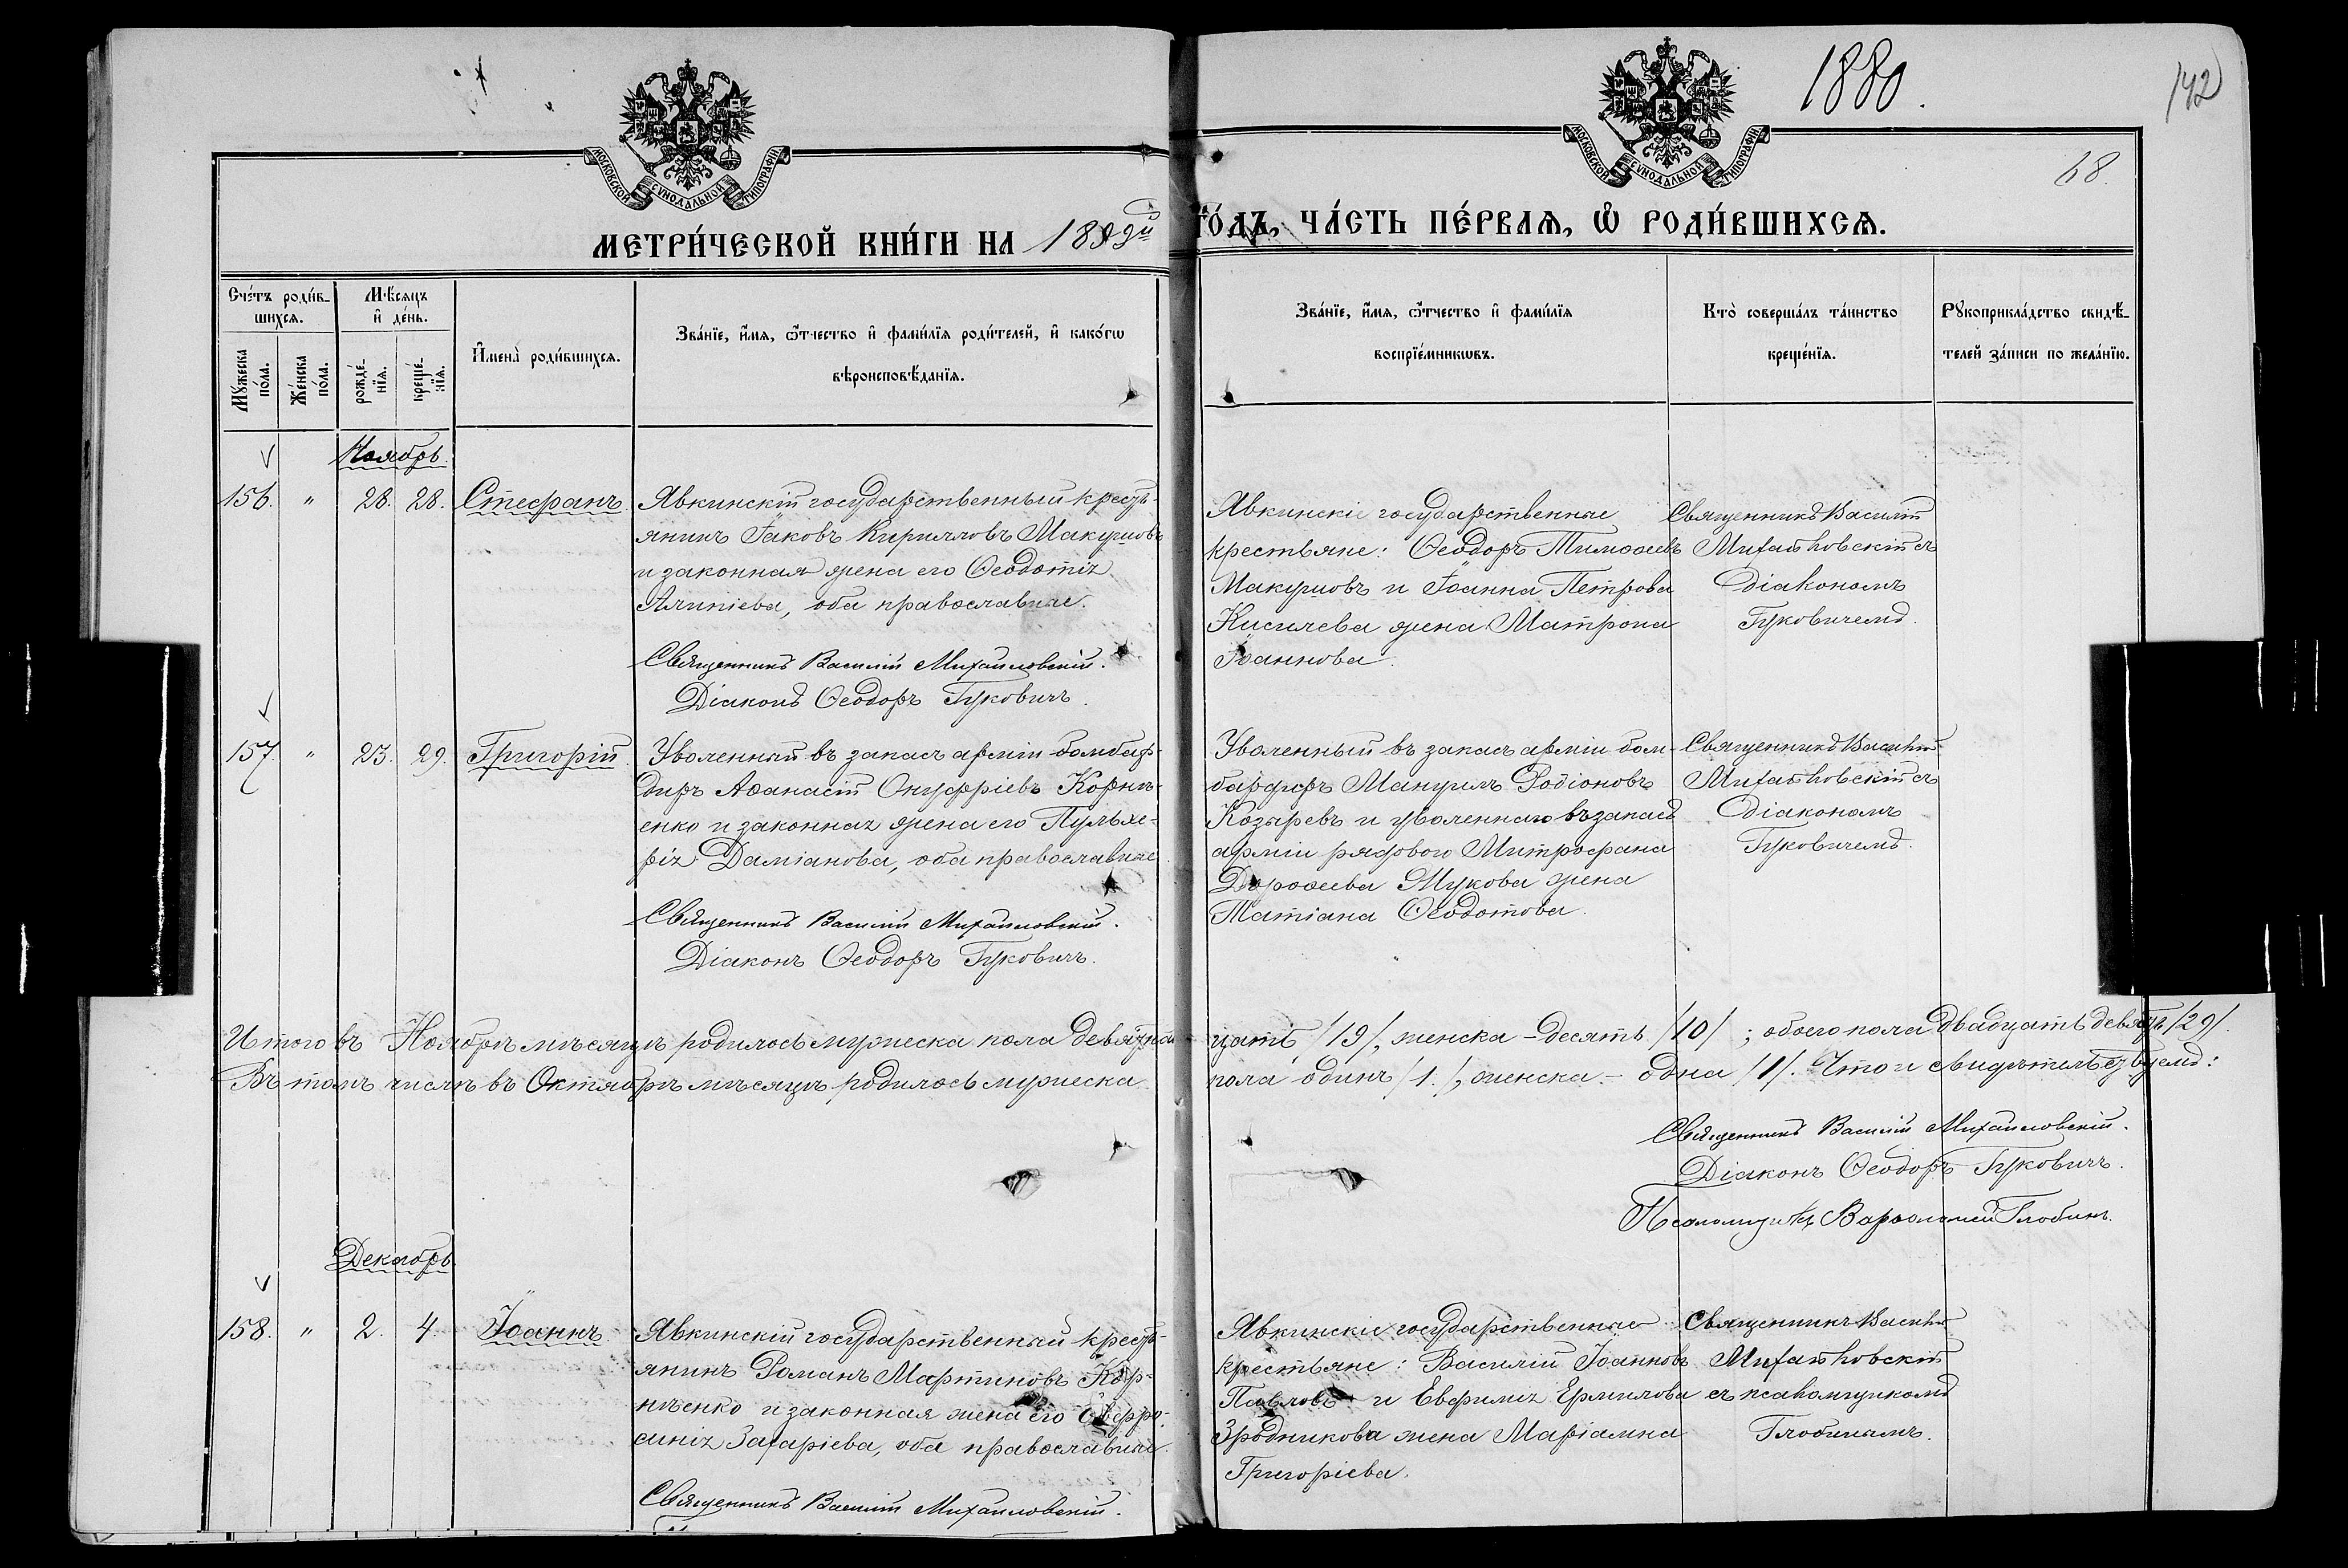 1880.
142
68.
МОСКОВСКОЙ СѴНОДАЛЬНОЙ ТИПОГРАФІИ
МОСКОВСКОЙ СѴНОДАЛЬНОЙ ТИПОГРАФІИ
МЕТРИ́ЧЕСКОЙ КНИ́ГИ НА
ГО́ДЪ, ЧА́СТЬ ПЕ́РВАѦ, Ѡ҆ РОДИ́ВШИХСѦ.
Сче́тъ роди́в-
шихсѧ.
Мꙋ́жеска
по́ла.
Же́нска
по́ла.
Мѣ́сѧцъ
и҆ де́нь.
рожде́-
нїѧ.
креще́-
нїѧ.
И҆мена̀ роди́вшихсѧ.
Зва́нїе, и҆́мѧ, ѻ҆́тчество и҆ фамѝлїѧ роди́телей, и҆ како́гѡ
вѣроисповѣ́данїѧ.
Зва́нїе, и҆́мѧ, ѻ҆́тчество и҆ фамѝлїѧ
воспрїе́мникѡвъ.
Кто̀ соверша́лъ та́инство
креще́нїѧ.
Рꙋкоприкла́дство свидѣ́-
телей за́писи по жела́нїю.
Ноябрь.
156. " 28. 28. Стефанъ.
Явкинскій государственный кресть-
янинъ Іаковъ Кирилловъ Макушовъ
и законная жена его Ѳеодотія
Алипіева, оба православные.
Священникъ Василій Михайловскій.
Діаконъ Ѳеодоръ Гуковичъ.
Явкинскіе государственные
крестьяне: Ѳеодоръ Тимоѳеевъ
Макушовъ и Іоанна Петрова
Киселева жена Матрона
Іоаннова.
Священникъ Василій
Михайловскій съ
діакономъ
Гуковичемъ.
157. " 23. 29. Григорій.
Уволенный въ запасъ арміи бомбар-
диръ Аѳанасій Онуфріевъ Корнѣ-
енко и законная жена его Пульхе-
рія Даміанова, оба православные.
Священникъ Василій Михайловскій.
Діаконъ Ѳеодоръ Гуковичъ.
Уволенный въ запасъ арміи бом-
бардиръ Мануилъ Родіоновъ
Козыревъ и уволеннаго въ запасъ
арміи рядового Митрофана
Дороѳеева Жукова жена
Татіана Ѳеодотова.
Священникъ Василій
Михайловскій съ
діакономъ
Гуковичемъ.
Итого въ Ноябрѣ мѣсяцѣ родилось мужеска пола девятнад-
цать /19/, женска - десять /10/; обоего пола двадцать девять /29/.
Въ томъ числѣ въ Октябрѣ мѣсяцѣ родилось мужеска
пола одинъ /1./, женска - одна /1/. Что и свидѣтельствуемъ:
Священникъ Василій Михайловскій.
Діаконъ Ѳеодоръ Гуковичъ.
Псаломщикъ Варѳоломей Глобинъ.
Декабрь.
158. " 2. 4 Іоаннъ.
Явкинскій государственный кресть-
янинъ Романъ Мартиновъ Кор-
нѣенко и законная жена его Евфро-
синія Захаріева, оба православные.
Священникъ Василій Михайловскій.
Явкинскіе государственные
крестьяне: Василій Іоанновъ
Павловъ и Евфимія Ермилова
Зродникова жена Маріамна
Григоріева.
Священникъ Василій
Михайловскій
съ псаломщикомъ
Глобинымъ.